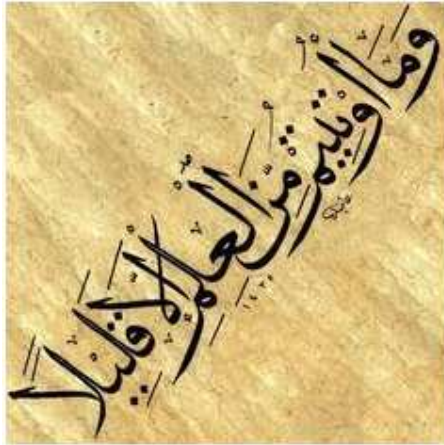 وَمَا أُوتِيتُم مِّنَ الْعِلْمِ إِلَّا قَلِيلًا
١٤٢٥